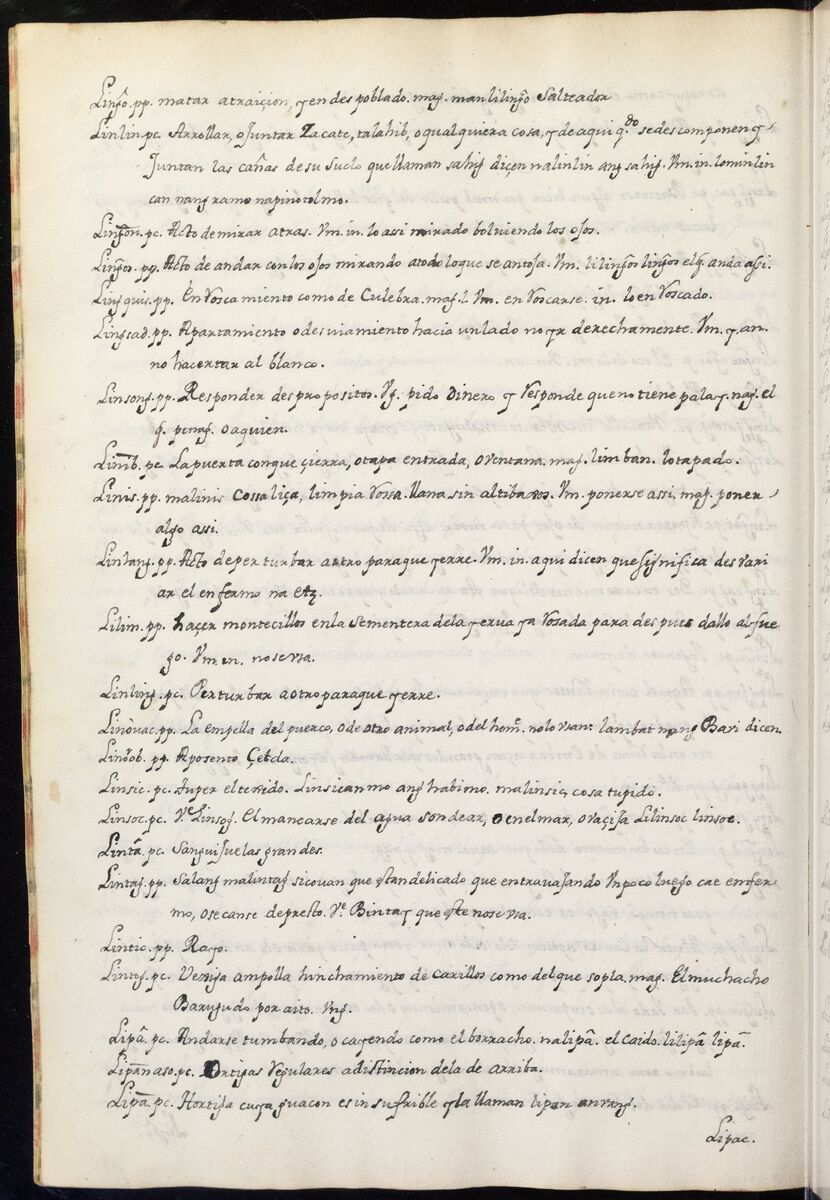 Lingo. pp. matar atraiçion, y en despoblado. mag. manlilingo Salteador
Linlin. pc. Arrollar, o Juntar Zacate, talahib, o qualquiera cosa, y de aqui q.do se descomponen y
Juntan las cañas de su suelo que llaman sahig diçen nalinlin ang sahig. Vm. in. lominlin
can nang ramo napinotolmo.
Lingon. pc. Acto de mirar atras. Vm. in. lo assi mirado bolviendo los ojos.
Lingos. pp. Acto de andar con los ojos mirando a todo lo que se antoja. Vm. lilingos lingos el q. anda assi.
Lingquis. pp. En Roscamiento como de Culebra. mag. l. Vm. en Roscarse. in. lo en Roscado.
Lingsad. pp. Apartamiento o desviamiento hacia un lado no yr derechamente. Vm. y an.
no hacertar al blanco.
Linsong. pp. Responder despropositos. Vg. pido Dinero y Responde que no tiene palay. nag. el
q. pcnag. o aquien.
Limb. pc. La puerta con que çierra, o tapa entrada, o Ventana. mag. limban. lo tapado.
Linis. pp. malinis Cossa liça, limpia Rossa. llana sin altibaxos. Vm. ponerse assi. mag. poner
algo assi.
Lintang. pp. Acto de perturbar a otro para que yerre. Vm. in. aqui dicen que significa desvari
ar el enfermo na etz.
Lilim. pp. haçer montecillos en la Sementera de la yerua ya Rosada para despues dallo al fue
go. Vm. en. no se vsa.
Linling. pc. Perturbar a otro para que yerre.
Linouac. pp. La empella del puerco, o de otro animal, o del home. no lo vsan: lambat nang Bari dicen.
Linoob. pp. Aposento Çelda.
Linsic. pc. tuper el texido. Linsican mo ang habi mo. malinsic, cosa tupido.
Linsoc. pc. Ve. Linsog. El manearse del agua sondear, o en el mar, o vaçija Lilinsoc linsoc.
Linta. pc. Sanguijuelas grandes.
Lintag. pp. Salang malintag sicouan que estan delicado que en travajando Vn poco luego cae enfer
mo, o se canse de presto. Ve. Bintay que este no se vsa.
Lintic. pp. Rayo.
Lintog. pc. Vexija ampolla hinchamiento de carillos como del que sopla. mag. El muchacho
Barugudo por aito. Vng.
Lipa. pc. Andarse tumbando, o cayendo como el borracho. nalipa. el caido. lilipa lipa.
Lipanaso. pc. Ortigas Regulares a distincion de la de arriba.
Lipa. pc. Hortiga cuya guacon es insufrible y la llaman lipan anvang.
Lipac.